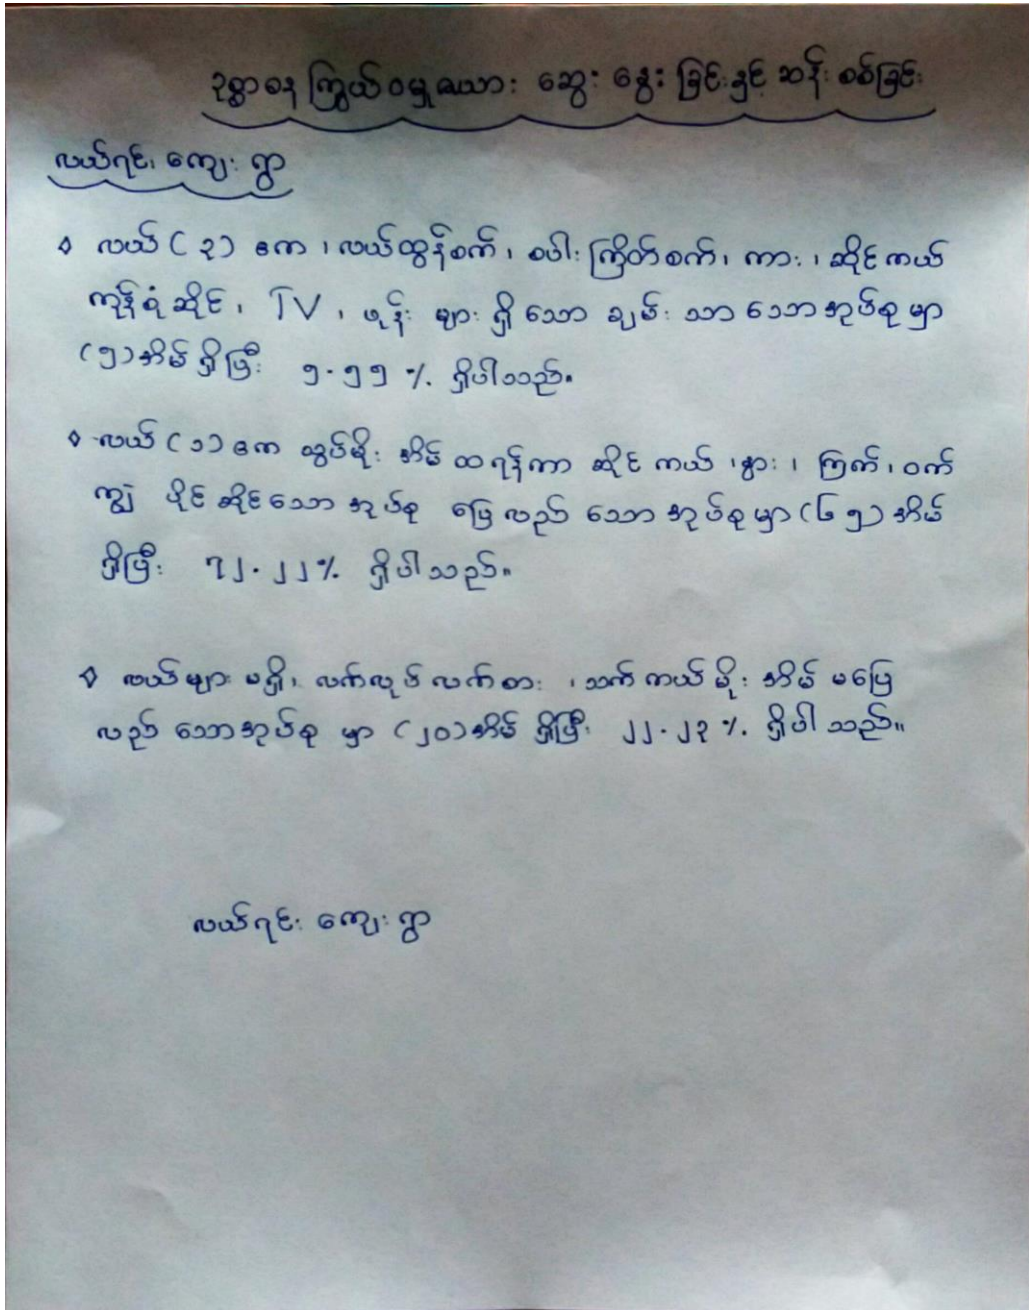 ဥစ္စာဓန ကြွယ်ဝမှုဇယား ဆွေးနွေးခြင်းနှင့် ဆန်းစစ်ခြင်း
လယ်ရင်း ကျေးရွာ
◊ လယ် (၃) ဧက ၊ လယ်ထွန်စက်၊ စပါးကြိတ်စက်၊ ကား ၊ ဆိုင်ကယ်
ကုန်စုံဆိုင်၊ TV ၊ ဖုန်း များ ရှိသော ချမ်းသာသောအုပ်စုမှာ
(၅)အိမ်ရှိပြီး ၅.၅၅ % ရှိပါသည်။
◊ လယ် (၁) ဧက သွပ်မိုး အိမ် ထရန်ကာ ဆိုင်ကယ် ၊နွား ၊ ကြက်၊ ဝက်
ကျွဲ ပိုင်ဆိုင်သော အုပ်စု ပြေလည်သောအုပ်စုမှာ (၆၅) အိမ်
ရှိပြီး ၇၂.၂၂% ရှိပါသည်။
◊ လယ်များ မရှိ၊ လက်လုပ်လက်စား ၊သက်ကယ်မိုး အိမ် မပြေ
လည်သောအုပ်စု မှာ (၂၀)အိမ် ရှိပြီး ၂၂.၂၃ % ရှိပါသည်။
လယ်ရင်း ကျေးရွာ